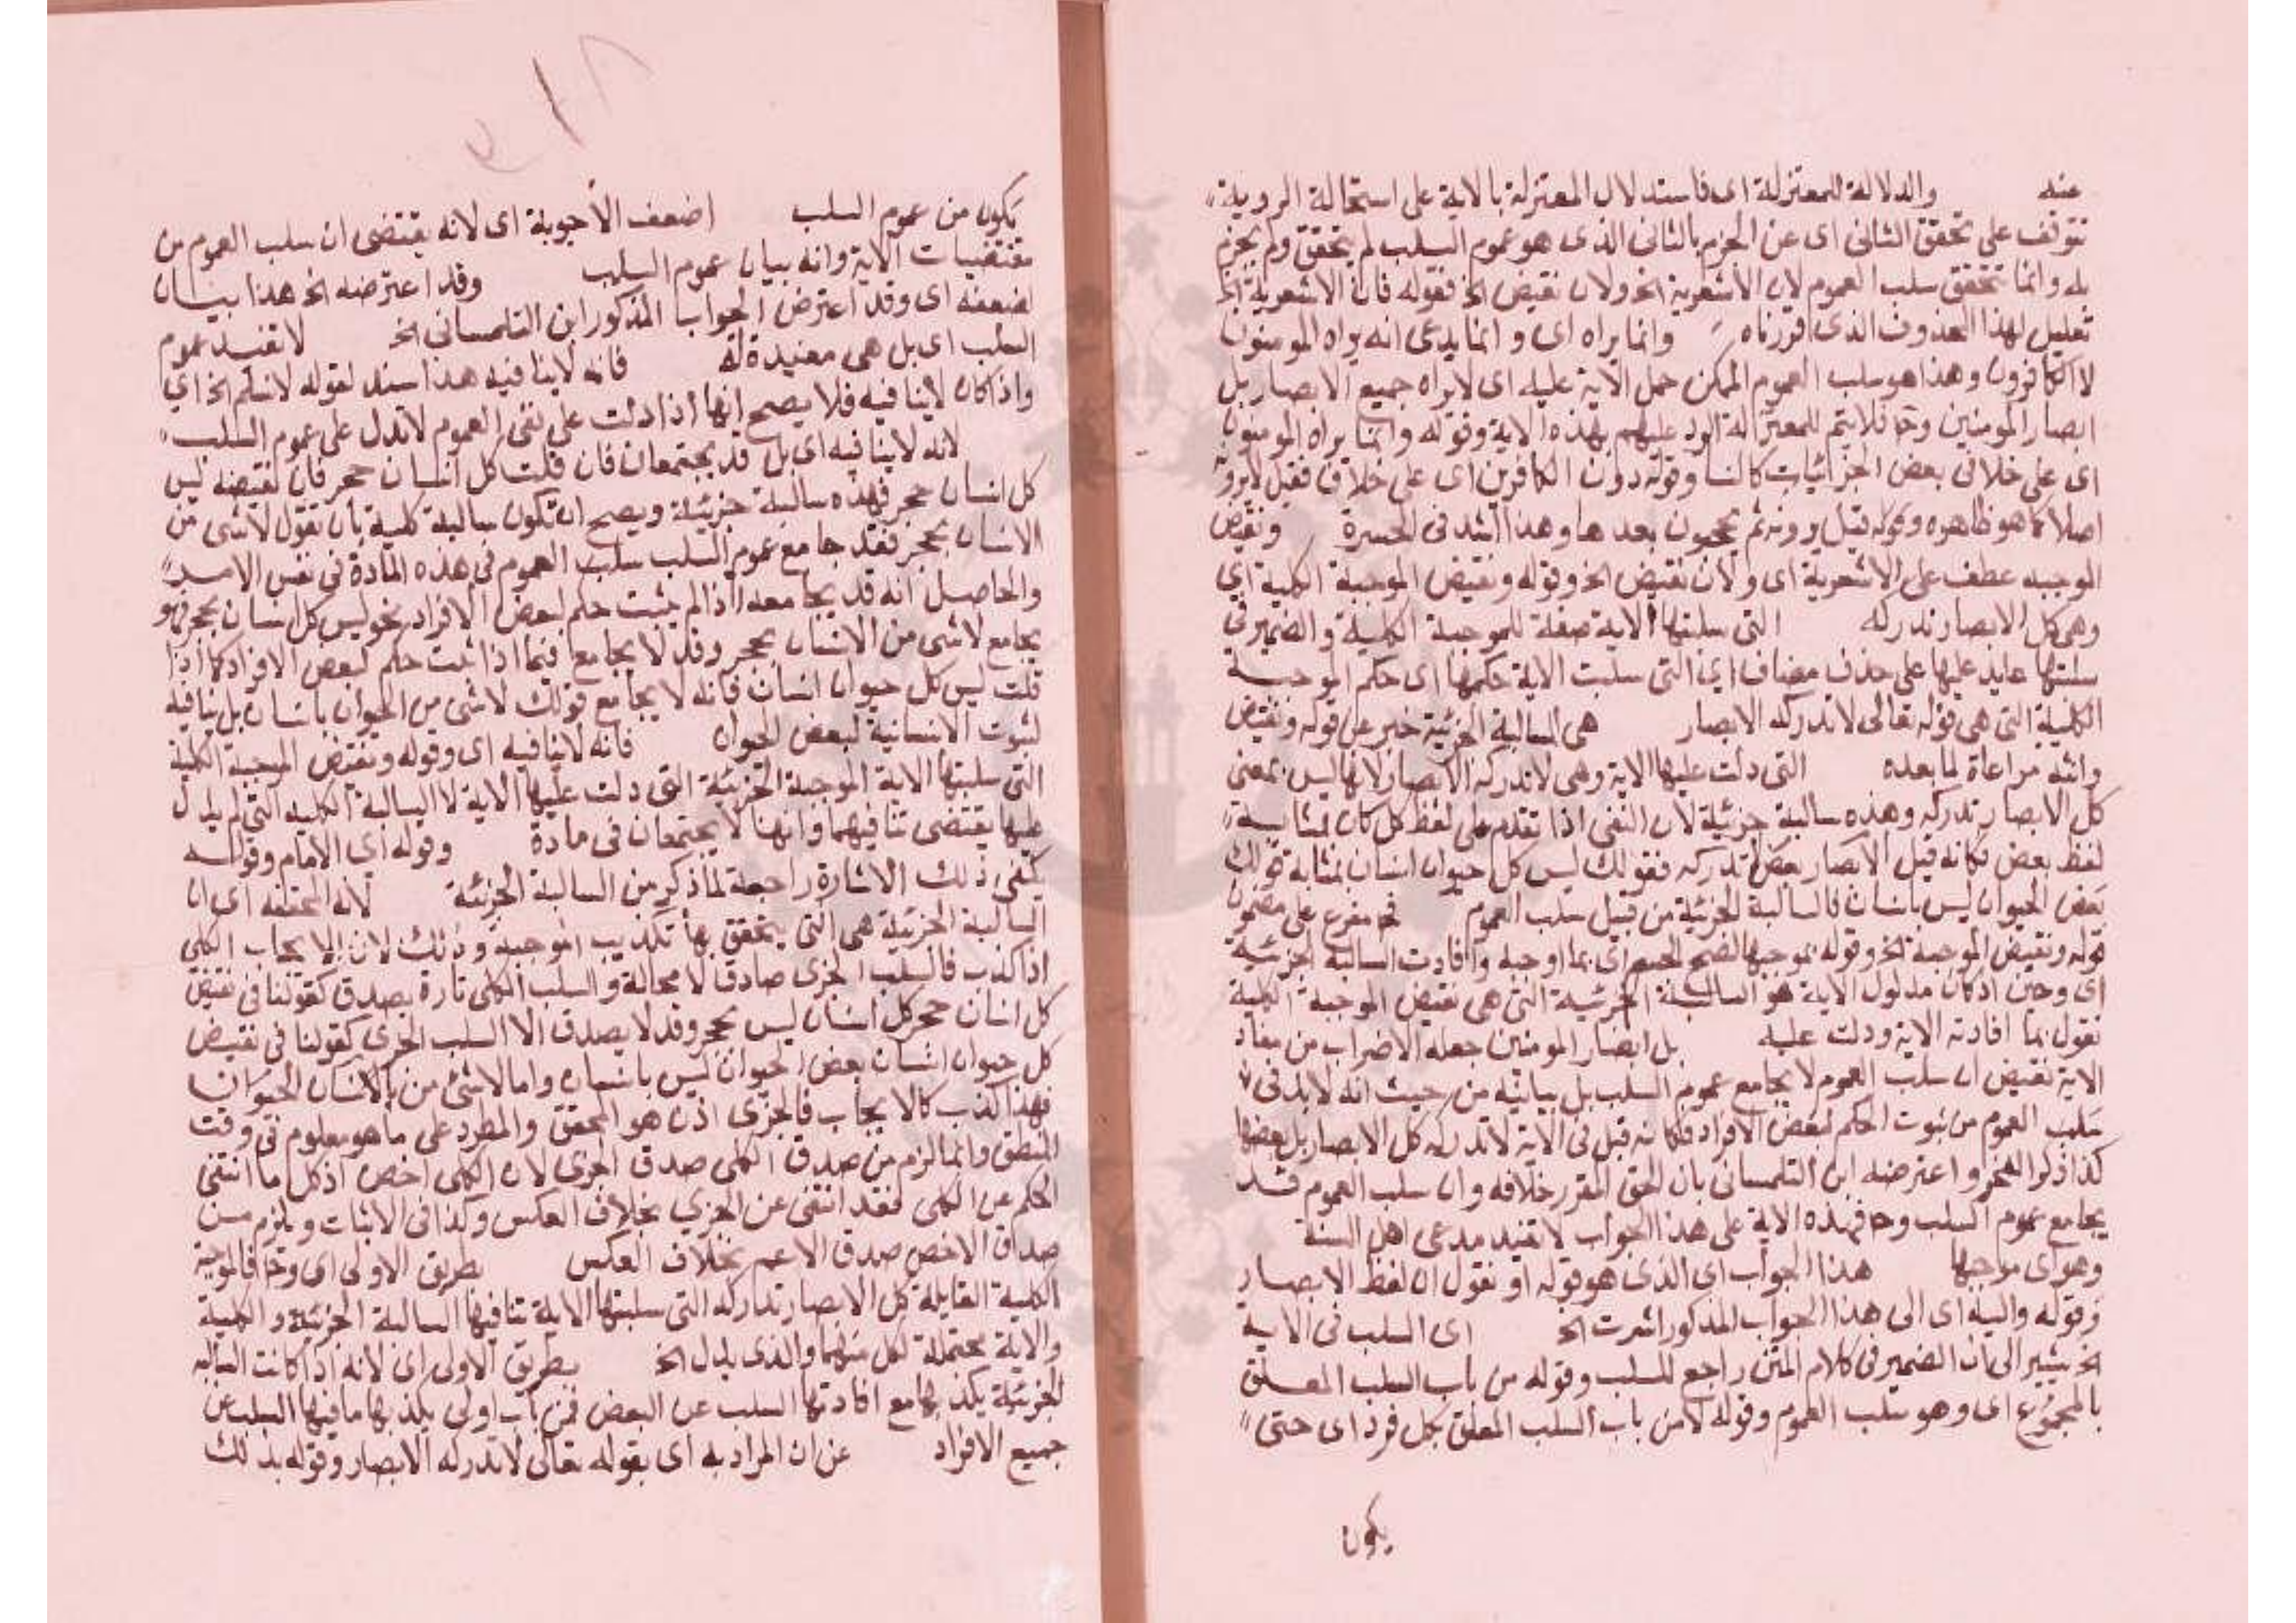 عنه والدلالة للمعتزلة اى فاستدلال المعتزلة بالاية على استحالة الروية
تتوقف على تحقق الثانى اى عن الجزم بالثانى الذى هو عموم السلب لم يتحقق ولم يجزم
به وانما تحقق سلب العموم لان الأشعرية الخ ولان نقيض الخ فقوله فان الاشعرية الخ
تعليل لهذا المحذوف الذى قررناه وانما يراه اى وانما يدعى انه يراه المومنون
لا الكافرون وهذا هو سلب العموم الممكن حمل الآية عليه اى لا يراه جميع الابصار بل
ابصار المومنين وح فلا يتم للمعتزلة الرد عليهم بهذه الاية وقوله وانما يراه المومنون
اى على خلاف بعض الجزائيات كالنسا وقوله دون الكافرين اى على خلاف فقيل لا يرونه
اصلا كما هو ظاهره وقوله قيل يرونه ثم يحجبون بعدها وهذا اشد فى الحسرة ونقيض
الموجبه عطف على الاشعرية اى ولان نقيض الخ وقوله ونقيض الموجبة الكلية اي
وهى كل الابصار تدركه التى سلبتها الاية صفة للموجبة الكلية والضمير فى
سلبتها عايد عليها على حذف مضاف اى التى سلبت الاية حكمها اى حكم الموجبة
الكلية التى هى قوله تعالى لا تدركه الابصار هى السالبة الجزئية خبر عن قوله ونقيض
وانثه مراعاة لما بعده التى دلت عليها الاية وهى لا تدركه الابصار لانها ليس بمعنى
كل الابصار تدركه وهذه سالبة جزئية لان النفى اذا تقدم على لفظ كل كان بمثابة
لفظ بعض فكانه قيل الابصار بعضها تدركه فقولك ليس كل حيوان انسان بمثابة قولك
بعض الحيوان ليس بانسان فالسالبة الجزئية من قبيل سلب العموم فح مفرع على مضمون
قوله ونقيض الموجبة الخ وقوله بموجبها لفتح الجيم اى بما اوجبه وافادت السالبة الجزئية
اى وحين اذ كان مدلول الاية هو السالبة الجزئية التى هى نقيض الموجبة الكلية
نقول بما افادته الاية ودلت عليه بل ابصار المومنين جعله الاضراب من مفاد
الاية نقيض ان سلب العموم لا يجامع عموم السلب بل يباينه من حيث انه لا بد فى
سلب العموم من ثبوت الحكم لبعض الافراد فكانه قيل فى الاية لا تدركه كل الابصار بل بعضها
كذا ذكر الفخر واعترضه ابن التلمسانى بان الحق المقرر خلافه وان سلب العموم قد
يجامع عموم السلب وح فهذه الاية على هذا الجواب لا تفيد مدعى اهل السنة
وهو اى موجبها هذا الجواب اى الذى هو قوله او نقول ان لفظ الابصار
وقوله واليه اى الى هذا الجواب المذكور اشرت الخ اى السلب فى الاية
الخ يشير الى ان الضمير فى كلام المتن راجع للسلب وقوله من باب السلب المعلق
بالمجموع اى وهو سلب العموم وقوله لا من باب السلب المعلق بكل فرد اى حتى
يكون
يكون من عموم السلب اضعف الأجوبة اى لانه يقتضى ان سلب العموم من
مقتضيات الاية وانه بيان عموم السلب وقد اعترضه الخ هذا بيان
لضعفه اى وقد اعترض الجواب المذكور ابن التلمسانى الخ لا تفيد عموم
السلب اى بل هى مفيدة له فانه لا ينافيه هذا سند لقوله لا نسلم الخ اي
واذا كان لا ينافيه فلا يصح انها اذا دلت على نفى العموم لا تدل على عموم السلب
لانه لا ينافيه اى بل قد يجتمعان فان قلت كل انسان حجر فان نقيضه ليس
كل انسان حجر فهذه سالبة جزئية ويصح ان تكون سالبة كلية بأن تقول لا شى من
الانسان بحجر فقد جامع عموم السلب سلب العموم فى هذه المادة فى نفس الامر
والحاصل انه قد يجامعه اذا لم يثبت حكم لبعض الافراد نحو ليس كل انسان بحجر فهو
يجامع لا شى من الانسان بحجر وقد لا يجامع فيما اذا ثبت حكم لبعض الافراد كما اذا
قلت ليس كل حيوان انسان فانه لا يجامع قولك لا شى من الحيوان بانسان بل ينافيه
لثبوت الانسانية لبعض الحيوان فانه لا ينافيه اى وقوله ونقيض الموجبة الكلية
التى سلبتها الاية الموجبة الجزئية التى دلت عليها الاية لا السالبة الكلية التى لم يدل
عليها يقتضى تنافيهما وانهما لا يجتمعان فى مادة وقوله اي الامام وقوله
يكفى ذلك الاشارة راجعة لما ذكر من السالبة الجزئية لانه المحققه اى ان
السالبة الجزئية هى التى يتحقق بها تكذيب الموجبة وذلك لان الايجاب الكلى
اذا كذب فالسلب الجزى صادق لا محالة والسلب الكلى تارة يصدق كقولنا فى نقيض
كل انسان حجر كل انسان ليس بحجر وقد لا يصدق الا السلب الجزى كقولنا فى نقيض
كل حيوان انسان بعض الحيوان ليس بانسان واما لا شئ من بالانسان الحيوان
فهذا كذب كالايجاب فالجزى اذن هو المحقق والمطرد على ما هو معلوم فى وقت
المنطق وانما لزم من صدق الكلى صدق الجزى لان الكلى اخص اذ كل ما انتفى
الحكم عن الكلى فقد انتفى عن الجزي بخلاف العكس وكذا فى الاثبات ويلزم من
صدق الاخص صدق الاعم بخلاف العكس بطريق الاولى اى وح فالموجبة
الكلية القايلة كل الابصار تدركه التى سلبتها الاية تنافيها السالبة الجزئية والكلية
والاية محتملة لكل منهما والذى يدل الخ بطريق الاولى اى لانه اذا كانت السالبه
الجزئية يكذبها مع افادتها السلب عن البعض فمن باب اولى يكذبها ما فيها السلب عن
جميع الافراد عن ان المراد به اى بقوله تعالى لا تدركه الابصار وقوله بذلك